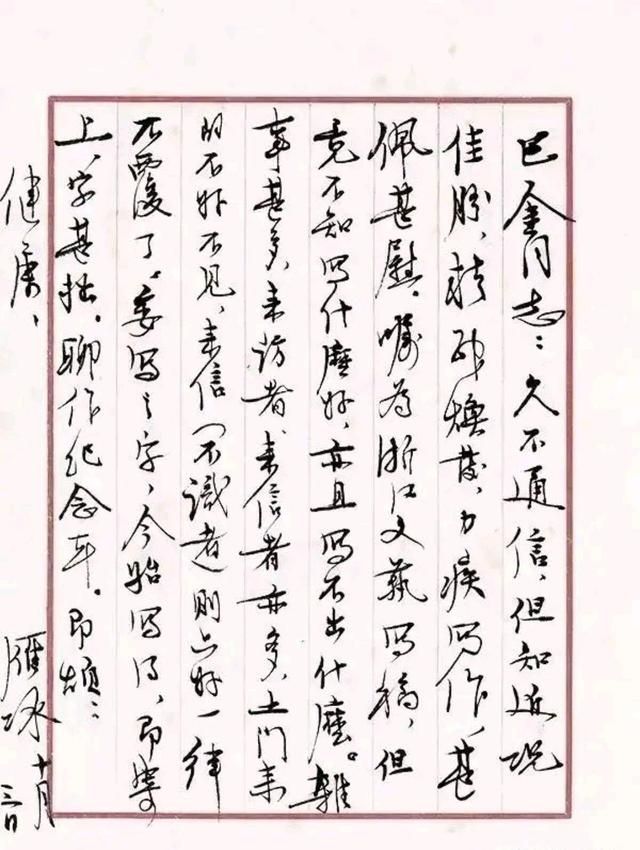 巴金同志：久不通信，但知近况
佳胜，精神焕发，力疾写作，甚
佩甚慰。嘱为浙江文艺写稿，但
竟不知写什麽好，亦且写不出什麽。雜
事甚多，来访者、来信者亦多，上门来
的不好不见，来信（不識者）则只好一律
不覆了。委写之字，今始写得，即寄
上，字甚拙。聊作纪念耳。即颂：
健康，
雁冰 十月
三日